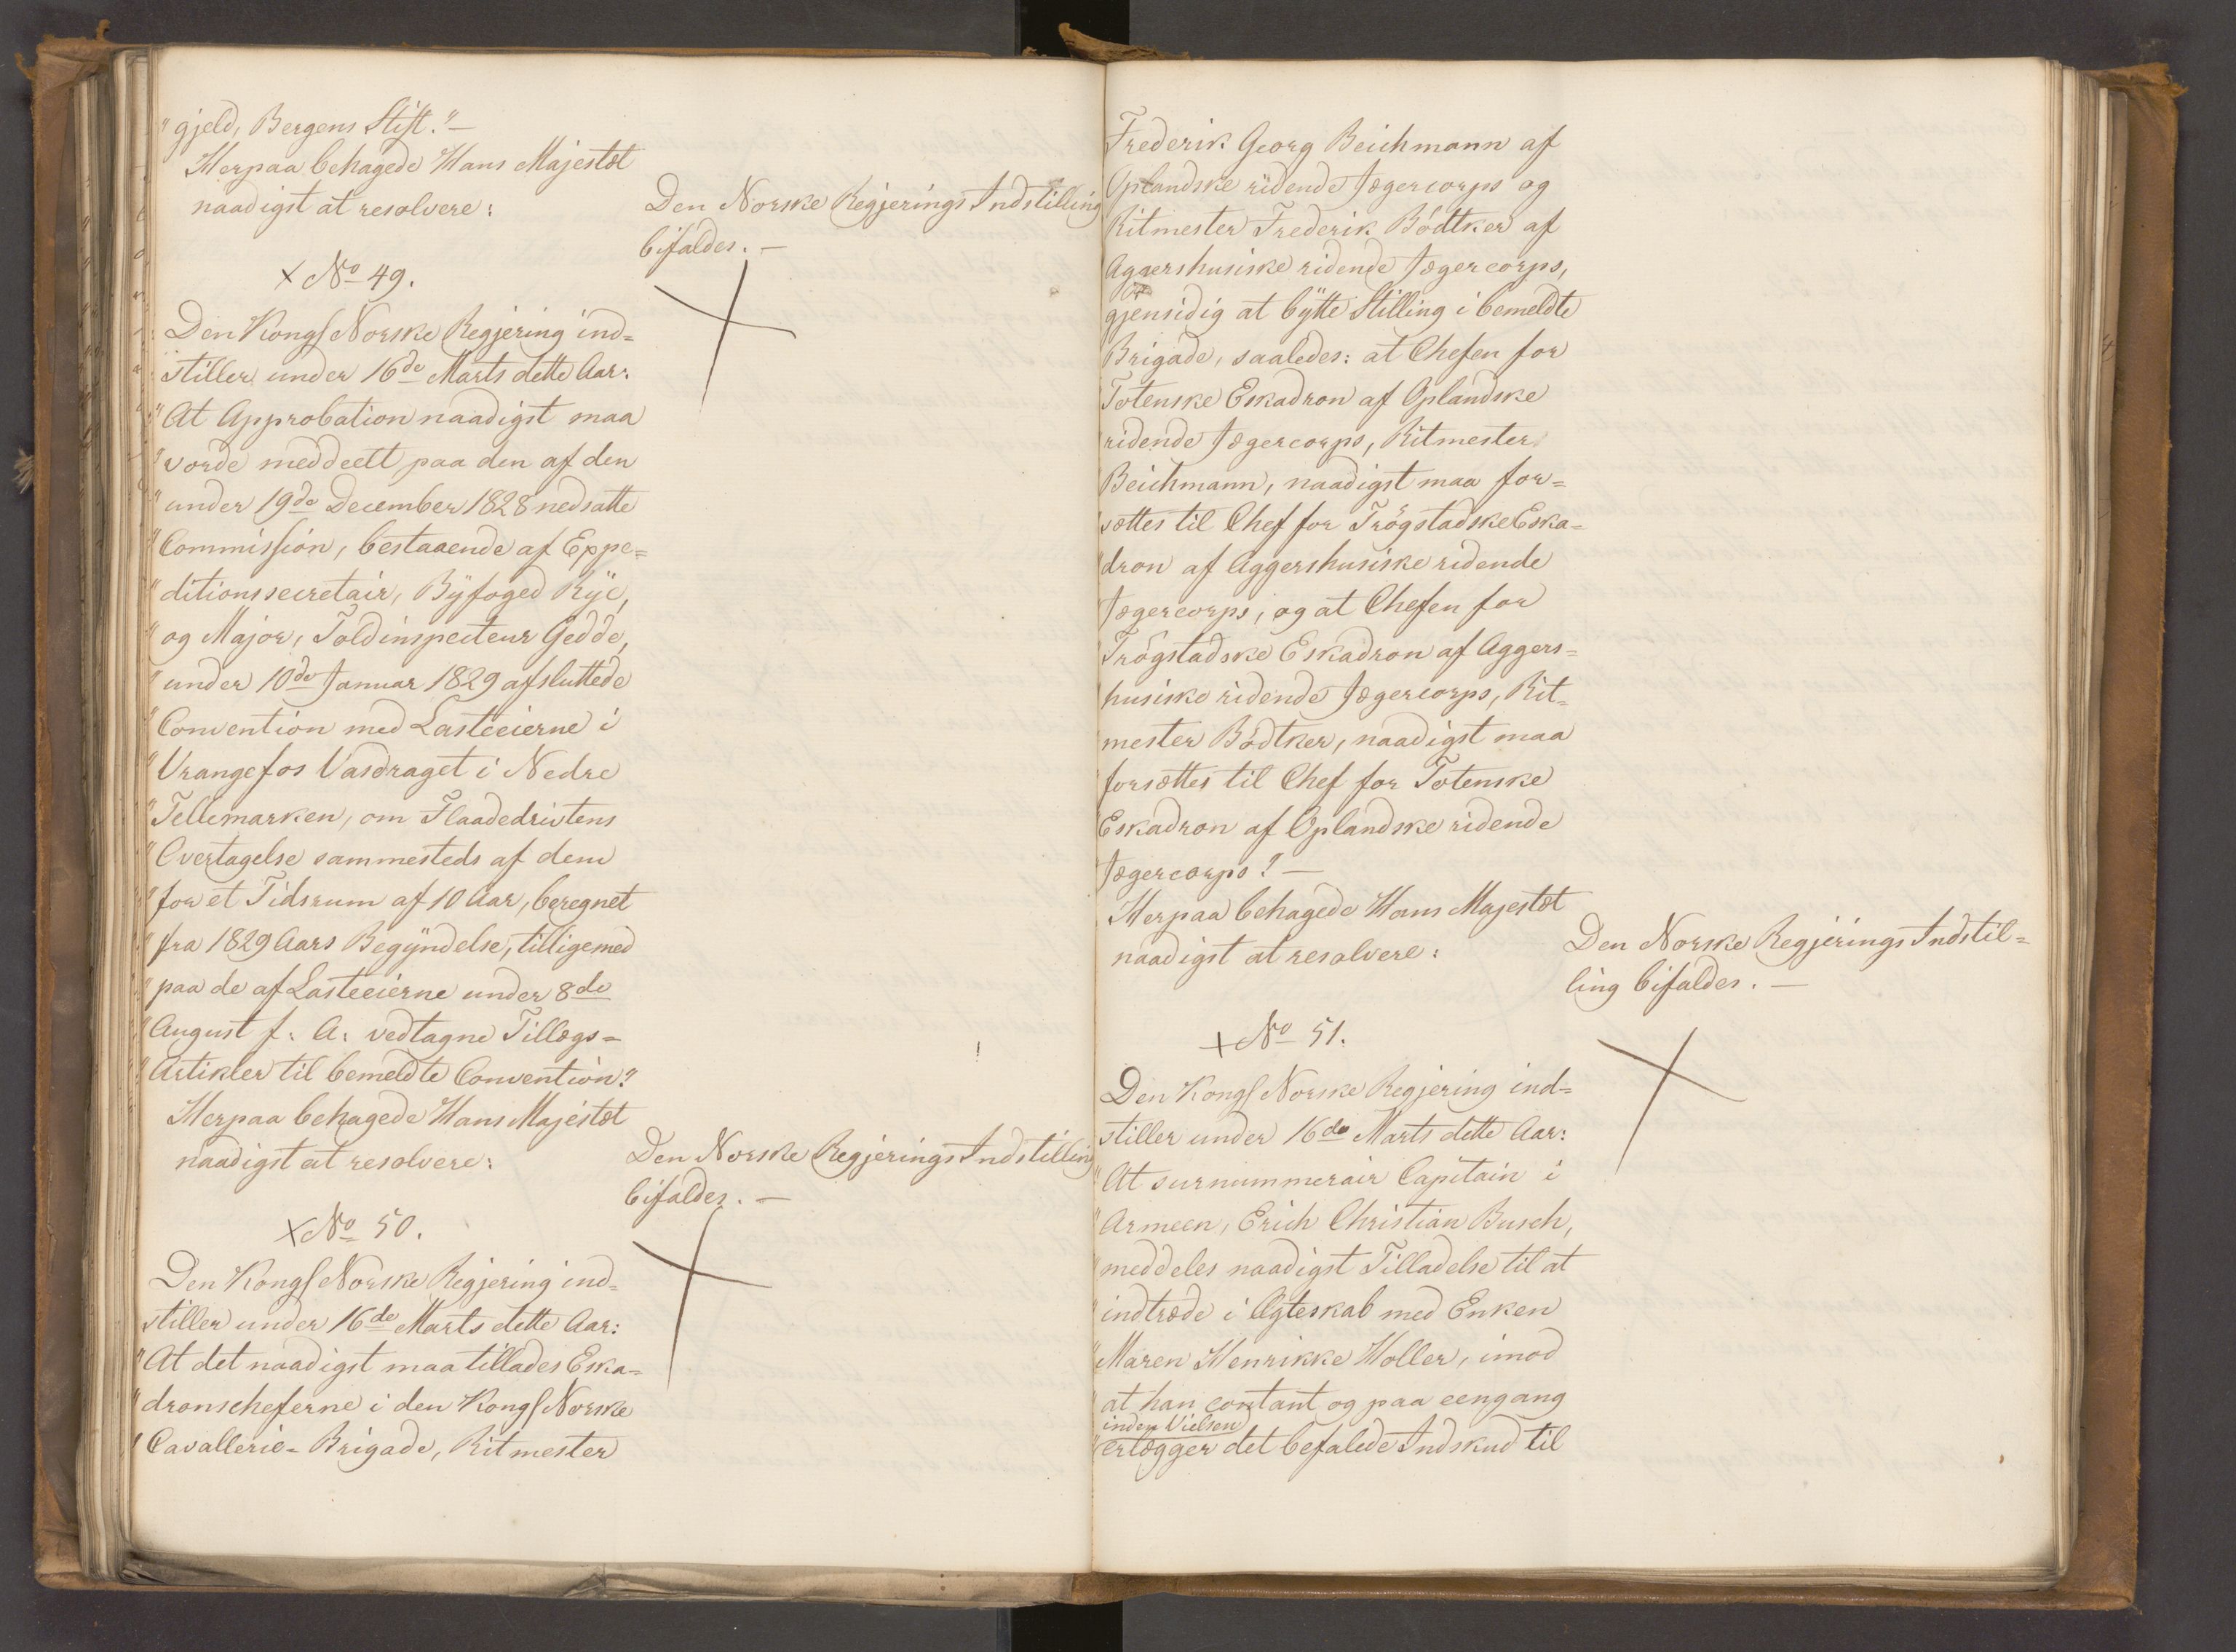 "gjeld, Bergens Stift."—
Herpaa behagede Hans Majestæt
naadigst at resolvere:
Den Norske Regjerings Indstilling
bifaldes. —
× No 49.
Den Kongl Norske Regjering ind=
stiller under 16de Marts dette Aar:
"At Approbation naadigst maa
"vorde meddeelt paa den af den
"under 19de December 1828 nedsatte
"Commission, bestaaende af Expe=
"ditionssecretair, Byfoged Rye,
"og Major, Toldinspecteur Gedde,
"under 10de Januar 1829 afsluttede
"Convention med Lasteeierne i
"Vrangefos Vasdraget i Nedre
"Tellemarken, om Flaadedrivtens
"Overtagelse sammesteds af dem
"for et Tidsrum af 10 Aar, beregnet
"fra 1829 Aars Begyndelse, tilligemed
"paa de af Lasteeierne under 8de
"August f. A. vedtagne Tillægs=
"Artikler til bemeldte Convention."
Herpaa behagede Hans Majestæt
naadigst at resolvere:
Den Norske Regjerings Indstilling
bifaldes. —
× No 50.
Den Kongl Norske Regjering ind=
stiller under 16de Marts dette Aar:
"At det naadigst maa tillades Eska=
"dronscheferne i den Kongl Norske
"Cavallerie=Brigade, Ritmester
Frederik Georg Beichmann af
Oplandske ridende Jægercorps og
Ritmester Frederik Bödtker af
Aggershusiske ridende Jægercorps,
gjensidig at bytte Stilling i bemeldte
Brigade, saaledes: at Chefen for
Totenske Eskadron af Oplandske
ridende Jægercorps, Ritmester
Beichmann, naadigst maa for=
sættes til Chef for Trögstadske Eska=
"dron af Aggershusiske ridende
Jægercorps, og at Chefen for
Trögstadske Eskadron af Aggers=
husiske ridende Jægercorps, Rit=
mester Bödtker, naadigst maa
forsættes til Chef for Totenske
Eskadron af Oplandske ridende
Jægercorps." —
Herpaa behagede Hans Majestæt
naadigst at resolvere:
Den Norske Regjerings Indstil=
ling bifaldes. —
+ No 51.
Den Kongl Norske Regjering ind=
stiller under 16de Marts dette Aar:
"At surnummerair Capitain i
"Armeen, Erich Christian Busch,
"meddeles naadigst Tilladelse til at
"indtræde i Ægteskab med Enken
"Maren Henrikke Holler, imod
"at han contant og paa eengang
inden Vielsen
"erlægger det befalede Indskud til